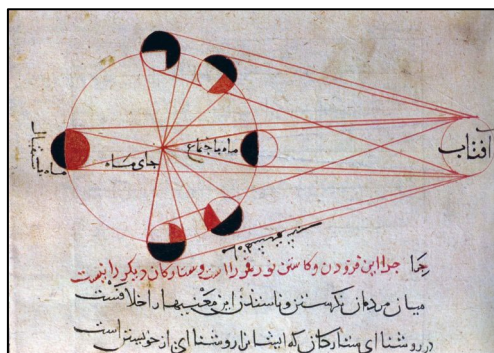 افتاب
ماه باجتماع
جای ماه
ماه باستقبال
چرا این فزودن و کاستن نور قمر را است و ستارکان دیکر را نیست
میان مردمان این معنیها را خلافست
در روشنای ستارکان که ایشانرا روشنای از خویشتن است